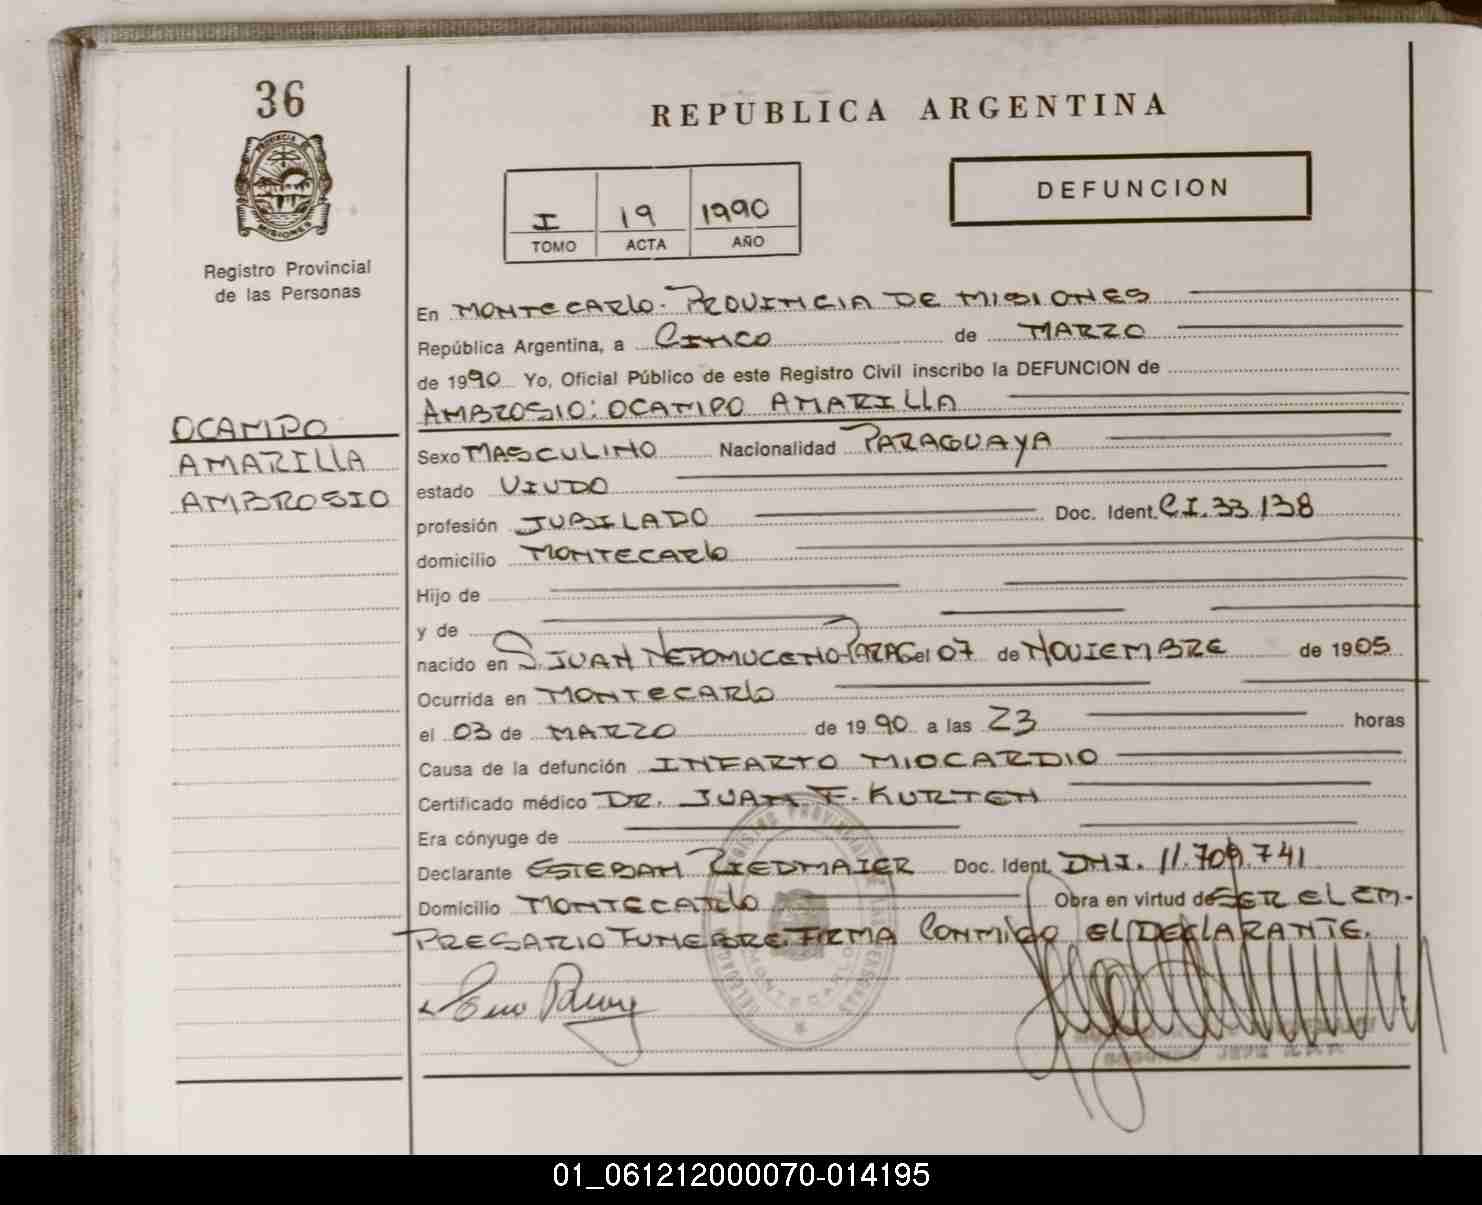 36
REPUBLICA ARGENTINA
PROVINCIA DE
MISIONES
Registro Provincial
de las Personas
I 19 1990
TOMO ACTA AÑO
DEFUNCION
OCAMPO
AMARILLA
AMBROSIO
En MONTECARLO - PROVINCIA DE MISIONES
República Argentina, a CINCO de MARZO
de 1990 Yo, Oficial Público de este Registro Civil inscribo la DEFUNCION de
AMBROSIO: OCAMPO AMARILLA
Sexo MASCULINO Nacionalidad PARAGUAYA
estado VIUDO
profesión JUBILADO Doc. Ident. CI. 33.138
domicilio MONTECARLO
Hijo de
y de
nacido en S. JUAN NEPOMUCENO-PARAG el 07 de NOVIEMBRE de 1905
Ocurrida en MONTECARLO
el 03 de MARZO de 1990 a las 23 horas
Causa de la defunción INFARTO MIOCARDIO
Certificado médico DR. JUAN F. KURTEN
Era cónyuge de
Declarante ESTEBAN RIEDMAIER Doc. Ident. DNI. 11.709.741
Domicilio MONTECARLO Obra en virtud de SER EL EM-
PRESARIO FUNEBRE FIRMA CONMIGO EL DECLARANTE.
MONTECARLO
01_061212000070-014195